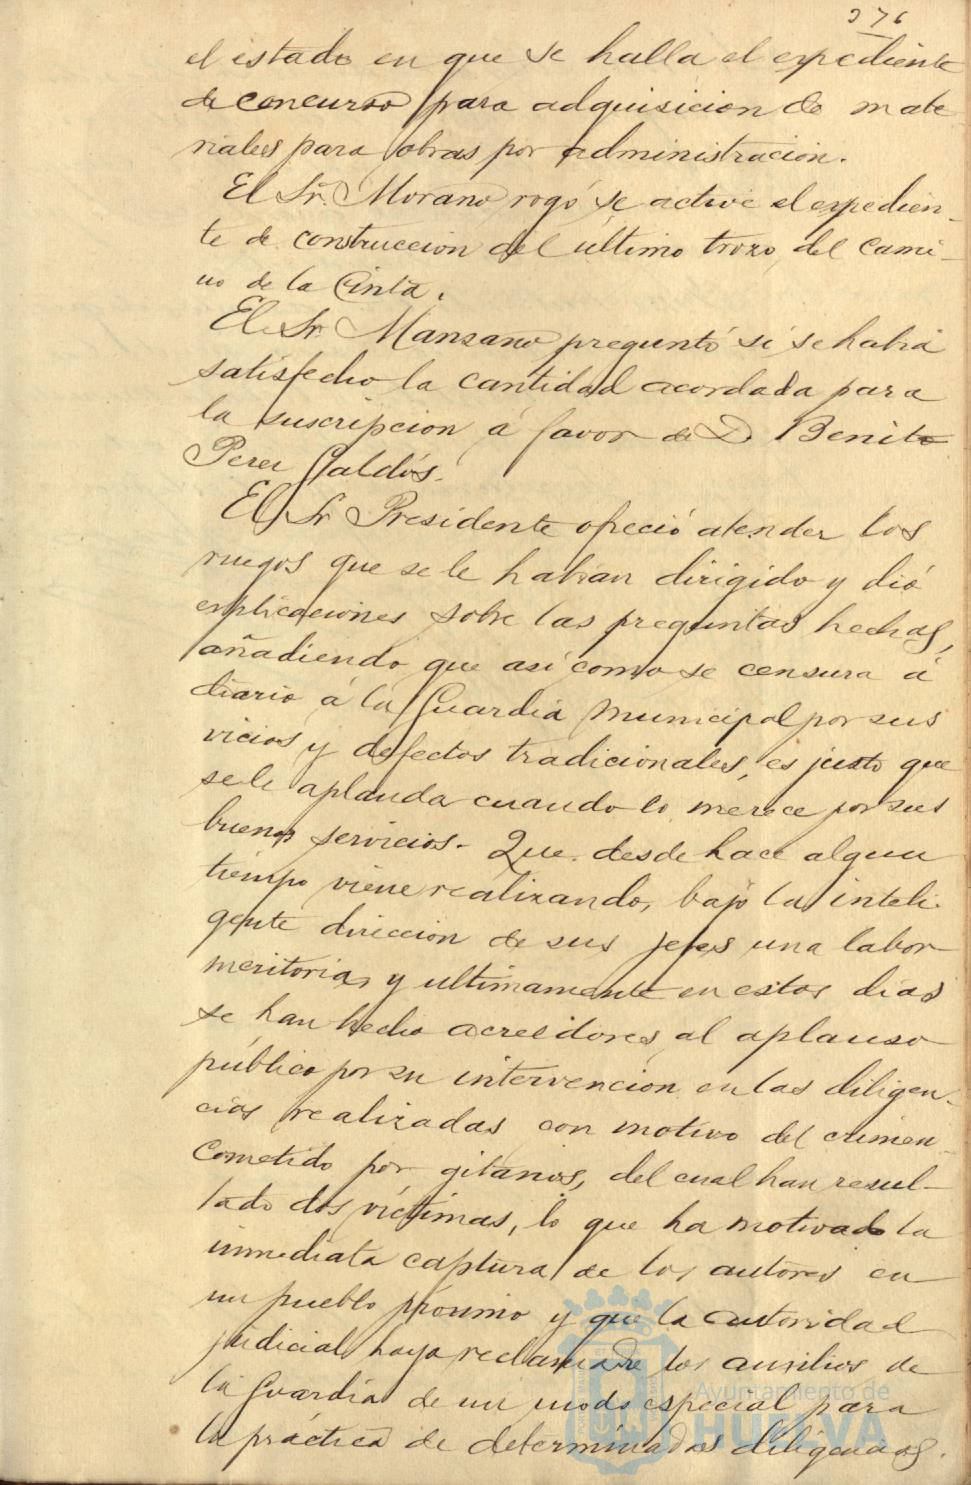 376
el estado en que se halla el expediente
de concurso para adquisicion de mate-
riales para obras por administracion.
El Sr. Morano rogó se active el expedien-
te de construccion del último trozo del Cami-
no de la Cinta.
El Sr. Manzano preguntó si se habia
satisfecho la cantidad acordada para
la suscripcion á favor de D Benito
Perez Galdós.
El Sr Presidente ofreció atender los
ruegos que se le habian dirigido y dió
explicaciones sobre las preguntas hechas,
añadiendo que así como se censura á
diario á la Guardia Municipal por sus
vicios y defectos tradicionales, es justo que
se le aplauda cuando lo merece por sus
buenos servicios. Que desde hace algun
tiempo viene realizando, bajo la inteli-
gente direccion de sus jefes una labor
meritoria, y ultimamente en estos dias
se han hecho acreedores al aplauso
público por su intervencion en las diligen-
cias realizadas con motivo del crimen
cometido por gitanos, del cual han resul-
tado dos víctimas, lo que ha motivado la
inmediata captura de los autores en
un pueblo próximo y que la autoridad
judicial haya reclamado los auxilios de
la Guardia de un modo especial para
la práctica de determinadas diligencias.
Ayuntamiento de
HUELVA